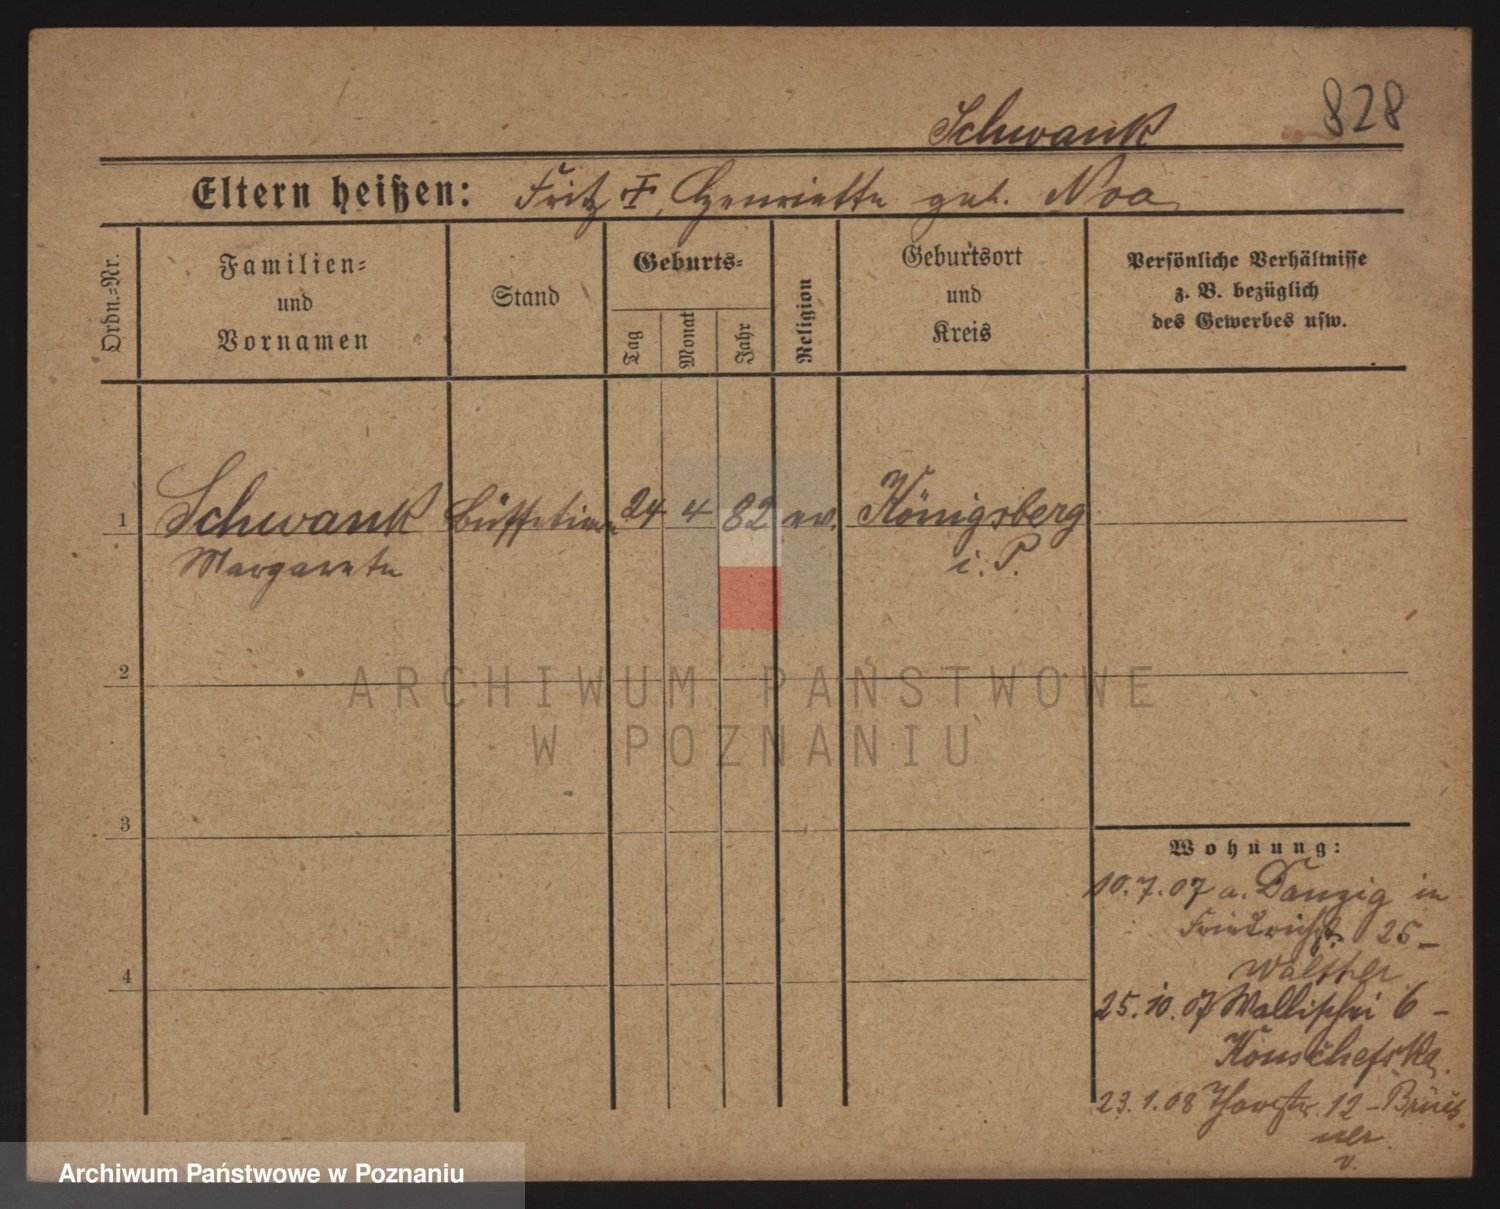 828
Schwank
Eltern heißen: Fritz †, Henriette geb. Noa
Ordn.=Nr.
Familien=
und
Vornamen
Stand
Geburts=
Tag
Monat
Jahr
Religion
Geburtsort
und
Kreis
Persönliche Verhältnisse
z. B. bezüglich
des Gewerbes usw.
1 Schwank Büffetiere 24 4 82 ev. Königsberg
Margarete i. P.
2
3
4
Wohnung:
10.7.07 a. Danzig in
Friedrichstr. 25 –
Walther
25.10.07 Wallischei 6 –
Konschefska.
23.1.08 12 –
ARCHIWUM PAŃSTWOWE
W POZNANIU
Archiwum Państwowe w Poznaniu